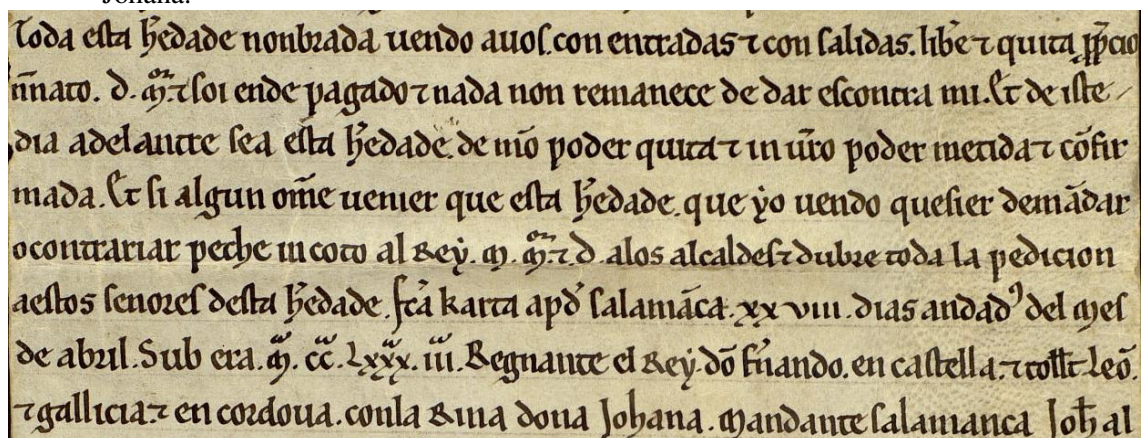 Johana.
Toda esta h̃edade nonbrada uendo auos. con entradas ⁊ con salidas. lib̃e ⁊ quita p̱p̃cio
nñato. d. m̃r̃. ⁊ soi ende pagado ⁊ nada non remanece de dar escontra mi. Et de iste
dia adelantre sea esta h̃edade. de mio poder quita ⁊ in ur̃o poder metida ⁊ cõfir
mada. Et si algun om̃e uenier que esta h̃edade. que yo uendo quesier demãdar
o contrariar peche in coto al Rey. M. m̃r̃. ⁊ d. alos alcaldes ⁊ dubre toda la pedicion
aestos senores desta h̃edade. fc̃a karta apd̃ salamãca. xx viii. dias andadꝰ del mes
de abril. Sub era. M̃. cc̃. Lxxx. iii. Regnante el Rey. dõ fr̃nando. en castella. ⁊ toll̃t Leõ.
⁊ gallicia ⁊ en cordoua. con la Rina dona Johana. Mandante salamanca Joh̃ al